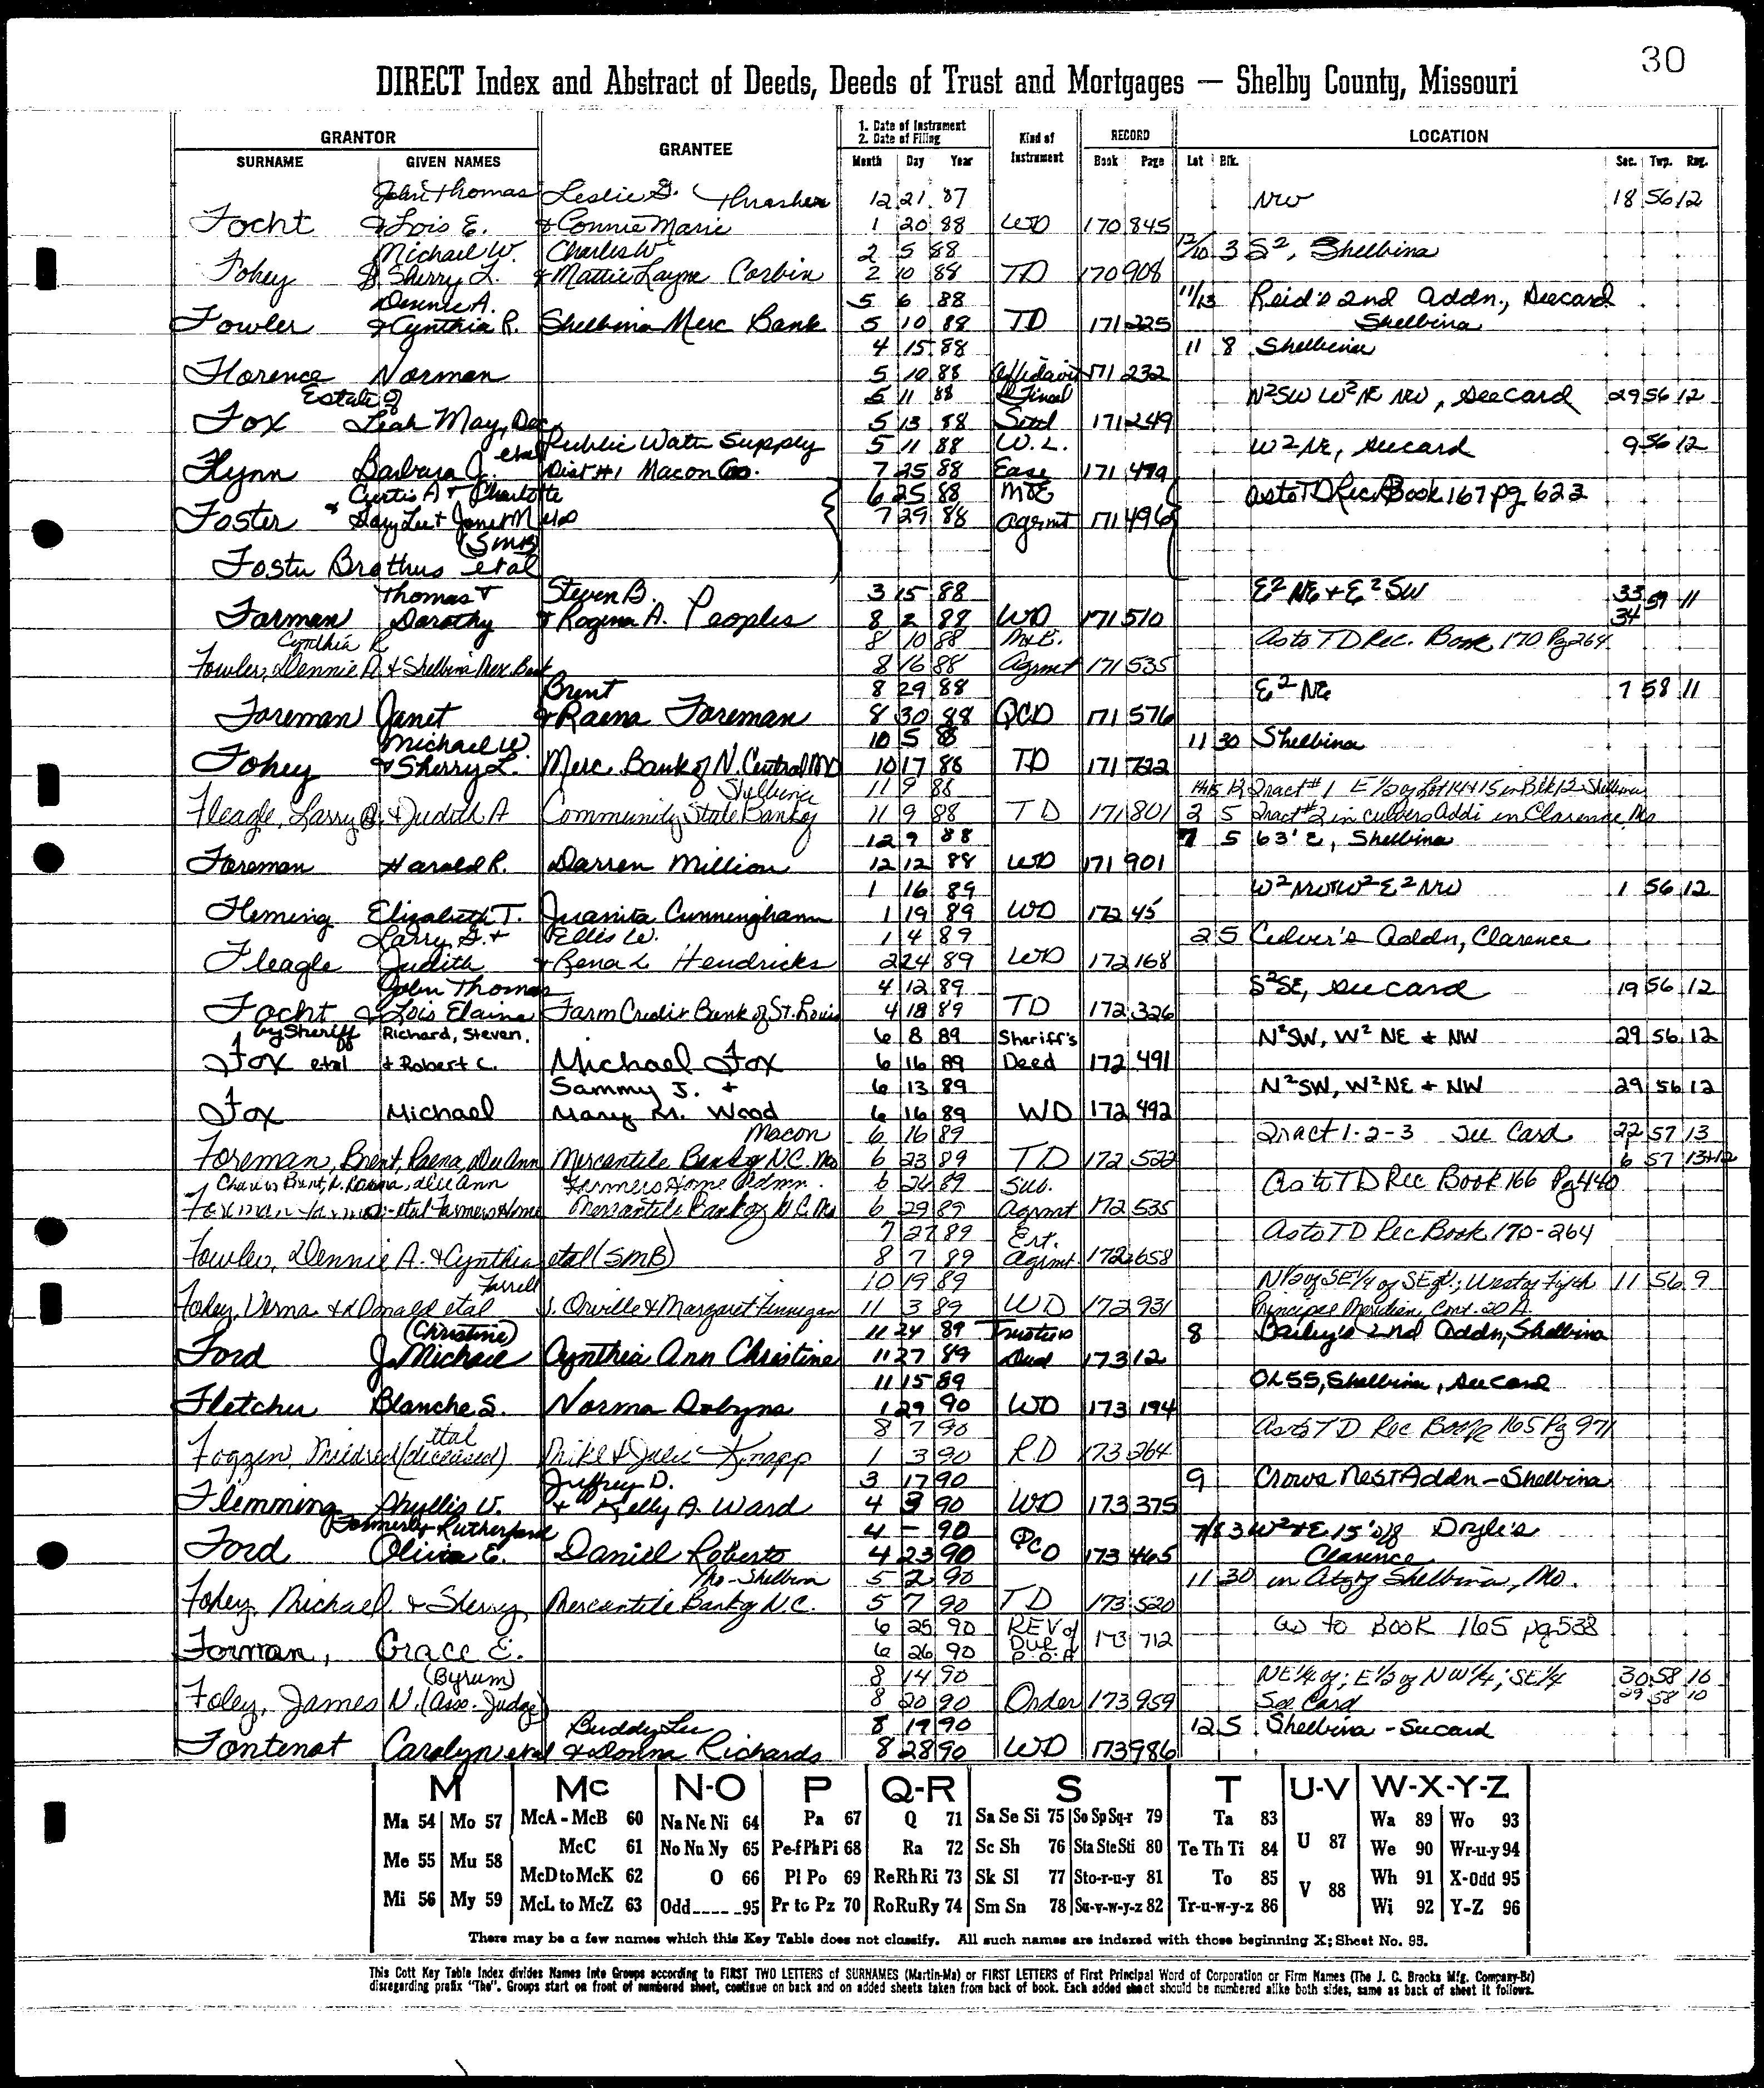 30
DIRECT Index and Abstract of Deeds, Deeds of Trust and Mortgages — Shelby County, Missouri
GRANTOR GRANTEE 1. Date of Instrument 2. Date of Filing Kind of Instrument RECORD LOCATION
SURNAME GIVEN NAMES Month Day Year Book Page Lot Blk. Sec. Twp. Rng.
John Thomas Leslie G. Thrasher 12 21 87 NW 18 56 12
Focht & Lois E. & Connie Marie 1 20 88 WD 170 845
Michael W. Charles W 2 5 88 3 S2, Shelbina
Fohey & Sherry L. & Mattie Layne Corbin 2 10 88 TD 170 908
Dennie A. 5 6 88 11/13 Reid's 2nd Addn., See card
Fowler & Cynthia R. Shelbina Merc Bank 5 10 88 TD 171 225 Shelbina
4 15 88 11 8 Shelbina
Florence Norman 5 10 88 Affidavit 171 232
Estate of 5 11 88 Final N2SW W2NE NW, See card 29 56 12
Fox Leah May, Dec 5 13 88 171 249
etal Public Water Supply 5 11 88 W.L. W2NE, See card 9 56 12
Flynn Barbara J. Dist #1 Macon Co. 7 25 88 Ease 171 479
Curtis A & Charlotte 6 25 88 as to TD Rec Book 167 pg 623
Foster & Gary Lee & Janet M 7 29 88 Agrmt 171 496
(SMB)
Foster Brothers etal
Thomas & Steven B. 3 15 88 E2NE & E2SW 33
Forman Dorothy & Rogena A. Peoples 8 2 88 WD 171 510 34 59 11
Cynthia R 8 10 88 As to TD Rec. Book 170 Pg 264
Fowler, Dennie A. & Shelbina Merc Bank 8 16 88 Agrmt 171 535
Brent 8 29 88 E2NE 7 58 11
Foreman Janet & Raena Foreman 8 30 88 QCD 171 576
Michael W. 10 5 88 11 30 Shelbina
Fohey & Sherry L. Merc. Bank of N. Central MO 10 17 88 TD 171 722
Shelbina 11 9 88 Tract #1 E 1/2 of Lot 14 & 15 in Blk 12 Shelbina
Fleagle, Larry G. & Judith A Community State Bank of 11 9 88 TD 171 801 2 5 Tract #2 in Culvers Addi in Clarence, Mo
12 9 88 7 5 63' E, Shelbina
Foreman Harold R. Darren Million 12 12 88 WD 171 901
1 16 89 W2NW & W2E2NW 1 56 12
Fleming Elizabeth T. Juanita Cunningham 1 19 89 WD 172 45
Larry G. & Ellis W. 1 4 89 2 5 Culver's Addn, Clarence
Fleagle Judith & Rena L Hendricks 2 24 89 WD 172 168
John Thomas 4 12 89 S2SE, See card 19 56 12
Focht & Lois Elaine Farm Credit Bank of St. Louis 4 18 89 TD 172 326
by Sheriff Richard, Steven, 6 8 89 Sheriff's N2SW, W2 NE & NW 29 56 12
Fox etal & Robert C. Michael Fox 6 16 89 Deed 172 491
Sammy J. & 6 13 89 N2SW, W2NE & NW 29 56 12
Fox Michael Mary M. Wood 6 16 89 WD 172 492
Macon 6 16 89 Tract 1-2-3 See Card 22 57 13
Foreman, Brent, Raena, DeeAnn Mercantile Bank of N.C. Mo 6 23 89 TD 172 522 6 57 13+12
Charles Brent, R. Raena, Dee Ann Farmers Home Admn. 6 26 89 Sub. As to TD Rec Book 166 Pg 440
Foreman Farms -etal Farmers Home Mercantile Bank of N.C. Mo 6 29 89 Agrmt 172 535
7 27 89 Ext. As to TD Rec Book 170-264
Fowler, Dennie A. & Cynthia etal (SMB) 8 7 89 Agrmt 172 658
Farrell 10 19 89 N1/2 of SE1/4 of SE1/4; West of Fifth 11 56 9
Fohey, Verna & Donald etal J. Orville & Margaret Finnigan 11 3 89 WD 172 931 Principle Meridian, Cont. 20 A.
(Christine) 11 24 89 Trustees 8 Bailey's 2nd Addn, Shelbina
Ford J. Michael Cynthia Ann Christine 11 27 89 Deed 173 12
11 15 89 OL55, Shelbina, See Card
Fletcher Blanche S. Norma Dobyns 1 29 90 WD 173 194
etal 8 7 90 As to TD Rec Book 165 Pg 971
Foggen, Mildred (deceased) Mike & Julie Knapp 1 3 90 RD 173 264
Jeffrey D. 3 17 90 9 Crows Nest Addn - Shelbina
Flemming Phyllis V. & Kelly A. Ward 4 3 90 WD 173 375
Formerly Rutherford 4 - 90 7/8 3 W2 & E 15' of Doyle's
Ford Olivia E. Daniel Roberts 4 23 90 QCD 173 465 Clarence
Mo-Shelbina 5 2 90 11 30 in City of Shelbina, Mo.
Fohey, Michael & Sherry, Mercantile Bank of N.C. 5 7 90 TD 173 520
6 25 90 REV of As to BOOK 165 pg 538
Forman, Grace E. 6 26 90 Dur P.O.A 173 712
(Byrum) 8 14 90 NE1/4 of; E1/2 of NW1/4; SE1/4 30 58 10
Foley, James N. (Asso. Judge) 8 20 90 Order 173 959 See Card 29 58 10
Buddy Lee 8 19 90 12 5 Shelbina - See card
Fontenot Carolyn etal & Donna Richards 8 28 90 WD 173 986
M Mc N-O P Q-R S T U-V W-X-Y-Z
Ma 54 Mo 57 McA - McB 60 Na Ne Ni 64 Pa 67 Q 71 Sa Se Si 75 So Sp Sq-r 79 Ta 83 U 87 Wa 89 Wo 93
Me 55 Mu 58 McC 61 No Nu Ny 65 Pe-f Ph Pi 68 Ra 72 Sc Sh 76 Sta Ste Sti 80 Te Th Ti 84 We 90 Wr-u-y 94
McD to McK 62 O 66 Pl Po 69 Re Rh Ri 73 Sk Sl 77 Sto-r-u-y 81 To 85 V 88 Wh 91 X-Odd 95
Mi 56 My 59 McL to McZ 63 Odd-----95 Pr to Pz 70 Ro Ru Ry 74 Sm Sn 78 Su-v-w-y-z 82 Tr-u-w-y-z 86 Wi 92 Y-Z 96
There may be a few names which this Key Table does not classify. All such names are indexed with those beginning X; Sheet No. 95.
This Cott Key Table Index divides Names into Groups according to FIRST TWO LETTERS of SURNAMES (Martin-Ma) or FIRST LETTERS of First Principal Word of Corporation or Firm Names (The J. C. Brocks Mfg. Company-Br)
disregarding prefix "The". Groups start on front of numbered sheet, continue on back and on added sheets taken from back of book. Each added sheet should be numbered alike both sides, same as back of sheet it follows.